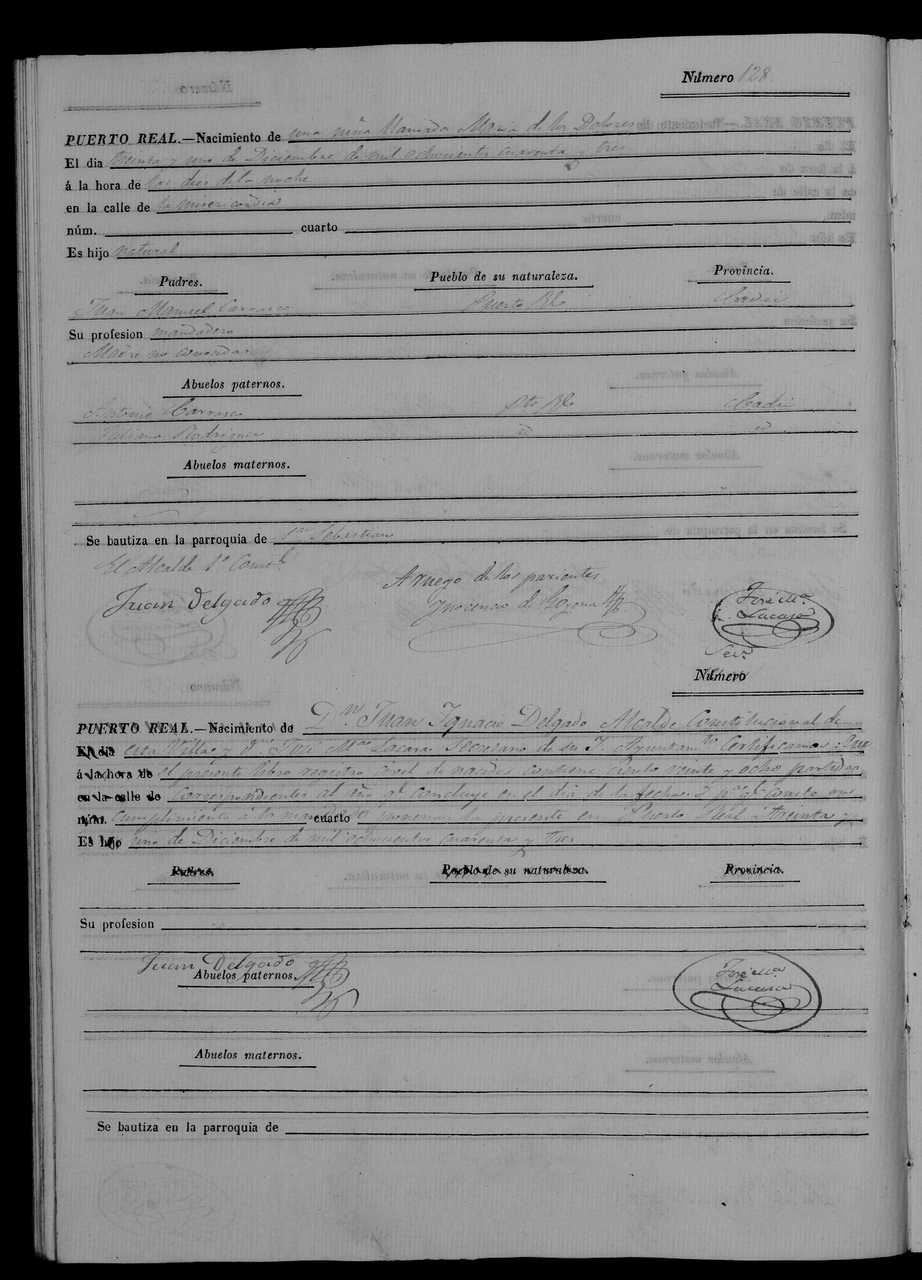 Número 128
PUERTO REAL.—Nacimiento de una niña llamada Maria de los Dolores
El dia treinta y uno de Diciembre de mil ochocientos cuarenta y tres
á la hora de las diez de la noche
en la calle de la misericordia
núm. cuarto
Es hijo natural
Padres. Pueblo de su naturaleza. Provincia.
Juan Manuel Carrasco Puerto Rl. Cadiz
Su profesion mandadero
Madre no conocida
Abuelos paternos.
Antonio Carrasco Pto. Rl. Cadiz
Rodriguez id id
Abuelos maternos.
Se bautiza en la parroquia de Sn. Sebastian
El Alcalde 1º Consl.
A ruego de los parientes
Juan Delgado
José Ma.
Lacaso
Srio.
Número
PUERTO REAL.—Nacimiento de Dn. Juan Ignacio Delgado Alcalde Constitucional de
El dia esta Villa, y Dn. José Ma. Secretario de su I. Ayuntamto. Certificamos: Que
á la hora de el presente libro registro civil de nacidos contiene ciento veinte y ocho partidas
en la calle de correspondientes al año qe. concluye en el dia de la fecha. Y pa. qe. conste en
núm. cumplimiento á lo mandado cuarto ponemos la presente en Puerto Real treinta y
Es hijo uno de Diciembre de mil ochocientos cuarenta y tres
Padres. Pueblo de su naturaleza. Provincia.
Su profesion
Juan Delgado
José Ma.
Lacaso
Abuelos paternos.
Abuelos maternos.
Se bautiza en la parroquia de